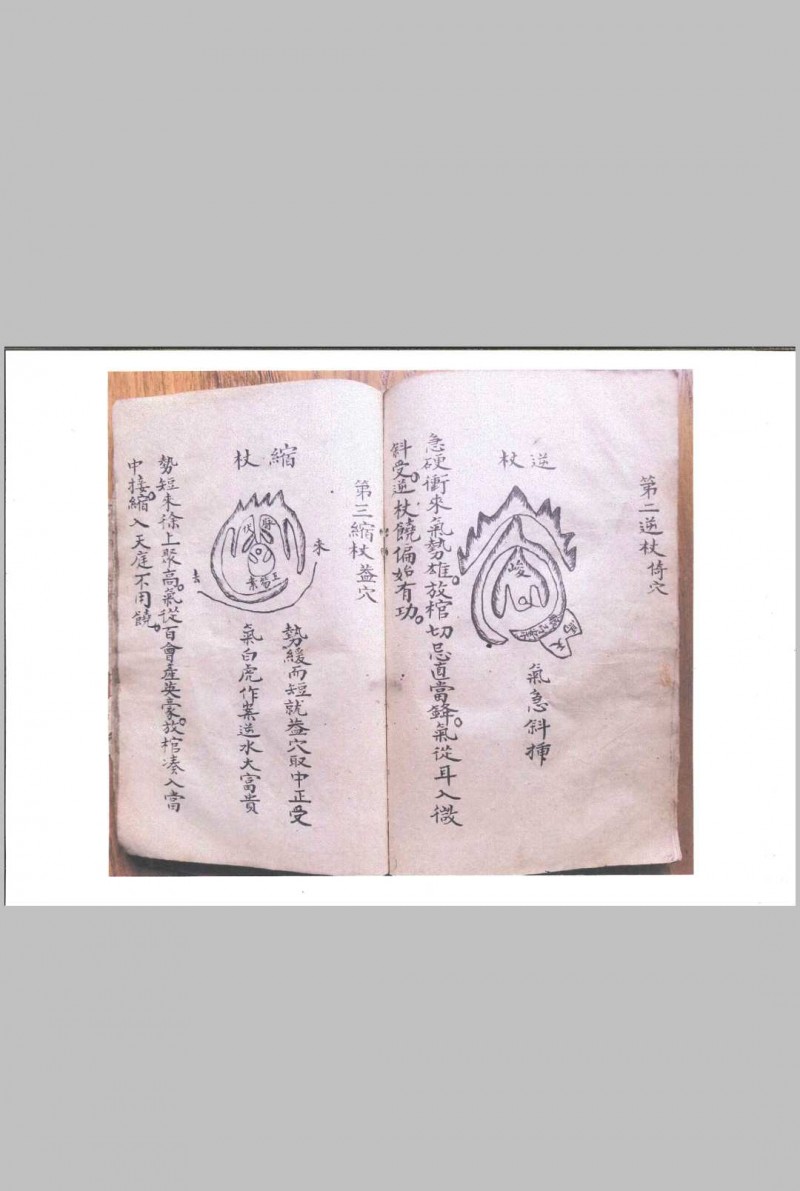 第二逆杖倚穴
逆杖
峻
氣急斜挿
急硬衝來氣勢雄。放棺切忌直當鋒。氣從耳入微
斜受。逆杖饒偏始有功。
第三縮杖蓋穴
縮杖
來
去
勢緩而短就蓋穴取中正受
氣白虎作案逆水大富貴
勢短來徐上聚高。氣從百會產英豪。放棺凑入當
中接。縮入天庭不用饒。